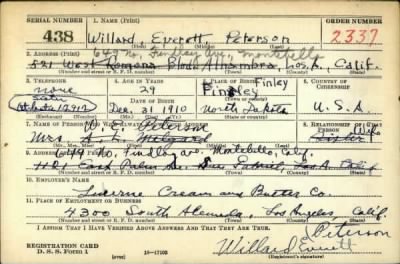 SERIAL NUMBER 1. NAME (Print) ORDER NUMBER
438 Willard, Everett Peterson 2337
2. ADDRESS (Print) 649 No. Findlay Ave, Montebello
West Blvd Alhambra, Los. A., Calif.
3. TELEPHONE 4. AGE IN YEARS 5. PLACE OF BIRTH Finley 6. COUNTRY OF CITIZENSHIP
none 29 Finley
DATE OF BIRTH
Dec. 31, 1910 North Dakota U. S. A.
7. NAME OF PERSON WHO WILL ALWAYS KNOW YOUR ADDRESS 8. RELATIONSHIP OF THAT PERSON Wife
Peterson
Mrs. Sister
9. ADDRESS OF THAT PERSON 649 No. Findlay Ave. Montebello, Calif.
San Gabriel Los A. Calif.
10. EMPLOYER'S NAME
Lucerne Cream and Butter Co.
11. PLACE OF EMPLOYMENT OR BUSINESS
4300 South Alameda, Los Angeles, Calif.
(Number and street or R. F. D. number) (Town) (County) (State)
I AFFIRM THAT I HAVE VERIFIED ABOVE ANSWERS AND THAT THEY ARE TRUE.
Peterson
REGISTRATION CARD
D. S. S. Form 1 Willard Everett